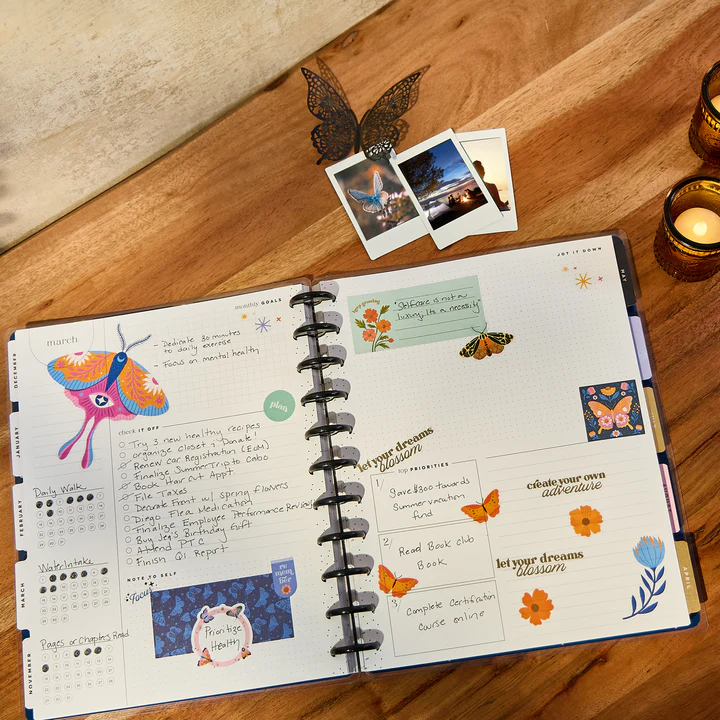 monthly GOALS
march
- Dedicate 30 minutes
to daily exercise
- Focus on mental health
plan
check IT OFF
Try 3 new healthy recipes
organize closet & Donate!
Renew Car Registration (EOM)
Finalize Summer Trip to Cabo
Book Hair Cut Appt
File Taxes
Decorate Front w/ Spring flowers
Diego Flea Medication
Finalize Employee Performance Reviews
Buy Jen's Birthday Gift
Attend PTC
Finish Q1 Report
Daily Walk
Water Intake
Pages or Chapters Read
NOTE TO SELF
Focus
Prioritize
Health
DECEMBER
JANUARY
FEBRUARY
MARCH
NOVEMBER
JOT IT DOWN
keep growing
"Selfcare is not a
luxury. Its a necessity"
let your dreams
blossom
top PRIORITIES
1/
Save $300 towards
Summer vacation
fund
2/
Read Book Club
Book
3/
Complete Certification
Course online
create your own
adventure
let your dreams
blossom
MAY